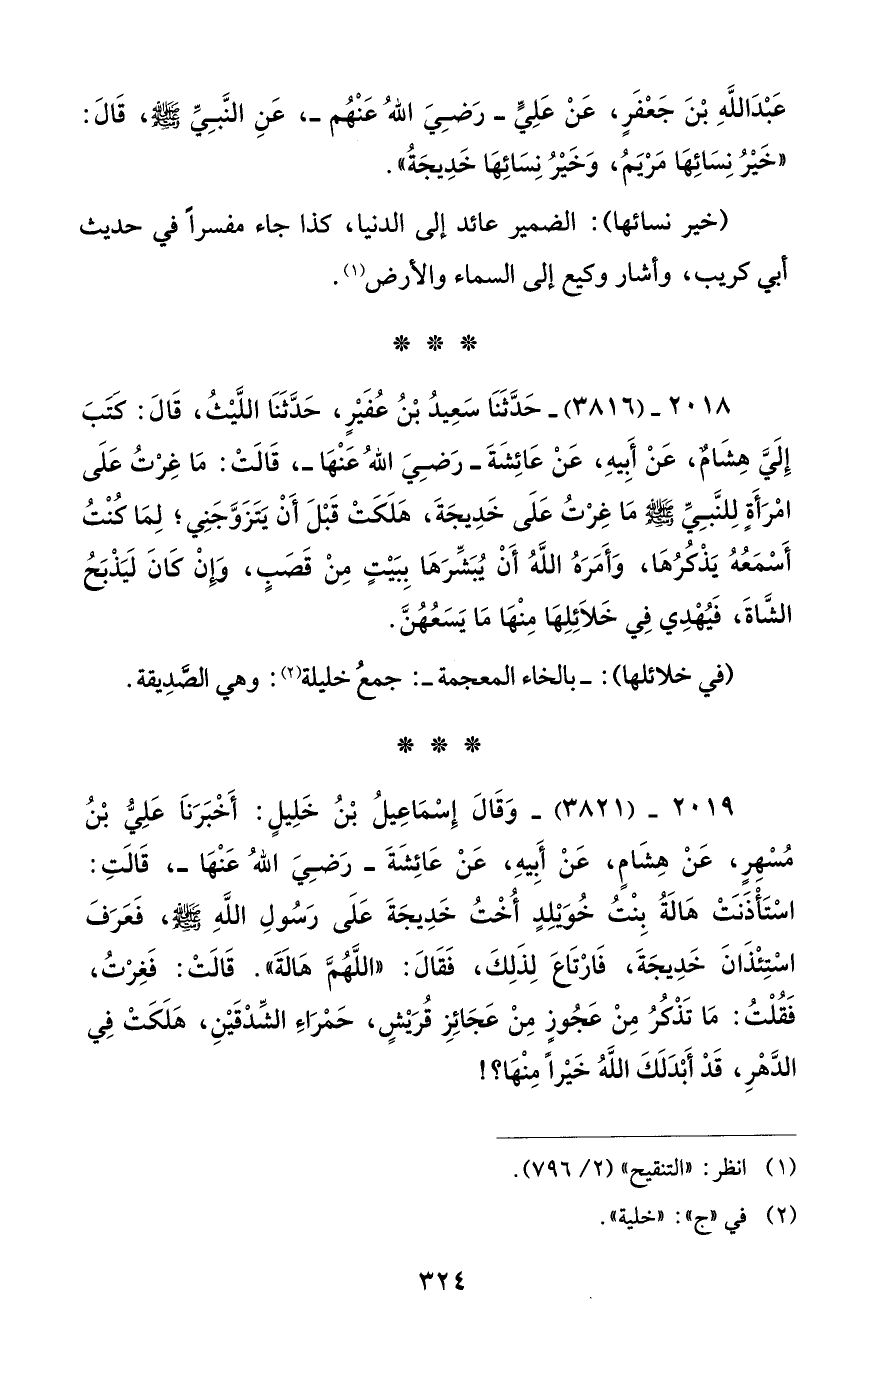 عَبْدَاللَّهِ بْنَ جَعْفَرٍ، عَنْ عَلِيٍّ ـ رَضِيَ اللهُ عَنْهُم ـ، عَنِ النَّبِيِّ ﷺ، قَالَ:
«خَيْرُ نِسَائِهَا مَرْيَمُ، وَخَيْرُ نِسَائِهَا خَدِيجَةُ».
(خير نسائها): الضمير عائد إلى الدنيا، كذا جاء مفسراً في حديث
أبي كريب، وأشار وكيع إلى السماء والأرض(١).
* * *
٢٠١٨ ـ (٣٨١٦) ـ حَدَّثَنَا سَعِيدُ بْنُ عُفَيْرٍ، حَدَّثَنَا اللَّيْثُ، قَالَ: كَتَبَ
إِلَيَّ هِشَامٌ، عَنْ أَبِيهِ، عَنْ عَائِشَةَ ـ رَضِيَ اللهُ عَنْهَا ـ، قَالَتْ: مَا غِرْتُ عَلَى
امْرَأَةٍ لِلنَّبِيِّ ﷺ مَا غِرْتُ عَلَى خَدِيجَةَ، هَلَكَتْ قَبْلَ أَنْ يَتَزَوَّجَنِي؛ لِمَا كُنْتُ
أَسْمَعُهُ يَذْكُرُهَا، وَأَمَرَهُ اللَّهُ أَنْ يُبَشِّرَهَا بِبَيْتٍ مِنْ قَصَبٍ، وَإِنْ كَانَ لَيَذْبَحُ
الشَّاةَ، فَيُهْدِي فِي خَلاَئِلِهَا مِنْهَا مَا يَسَعُهُنَّ.
(في خلائلها): ـ بالخاء المعجمة ـ: جمعُ خليلة(٢): وهي الصَّدِيقة.
* * *
٢٠١٩ ـ (٣٨٢١) ـ وَقَالَ إِسْمَاعِيلُ بْنُ خَلِيلٍ: أَخْبَرَنَا عَلِيُّ بْنُ
مُسْهِرٍ، عَنْ هِشَامٍ، عَنْ أَبِيهِ، عَنْ عَائِشَةَ ـ رَضِيَ اللهُ عَنْهَا ـ، قَالَتِ:
اسْتَأْذَنَتْ هَالَةُ بِنْتُ خُوَيْلِدٍ أُخْتُ خَدِيجَةَ عَلَى رَسُولِ اللَّهِ ﷺ، فَعَرَفَ
اسْتِئْذَانَ خَدِيجَةَ، فَارْتَاعَ لِذَلِكَ، فَقَالَ: «اللَّهُمَّ هَالَةَ». قَالَتْ: فَغِرْتُ،
فَقُلْتُ: مَا تَذْكُرُ مِنْ عَجُوزٍ مِنْ عَجَائِزِ قُرَيْشٍ، حَمْرَاءِ الشِّدْقَيْنِ، هَلَكَتْ فِي
الدَّهْرِ، قَدْ أَبْدَلَكَ اللَّهُ خَيْراً مِنْهَا؟!
(١) انظر: «التنقيح» (٢/ ٧٩٦).
(٢) في «ج»: «خلية».
٣٢٤